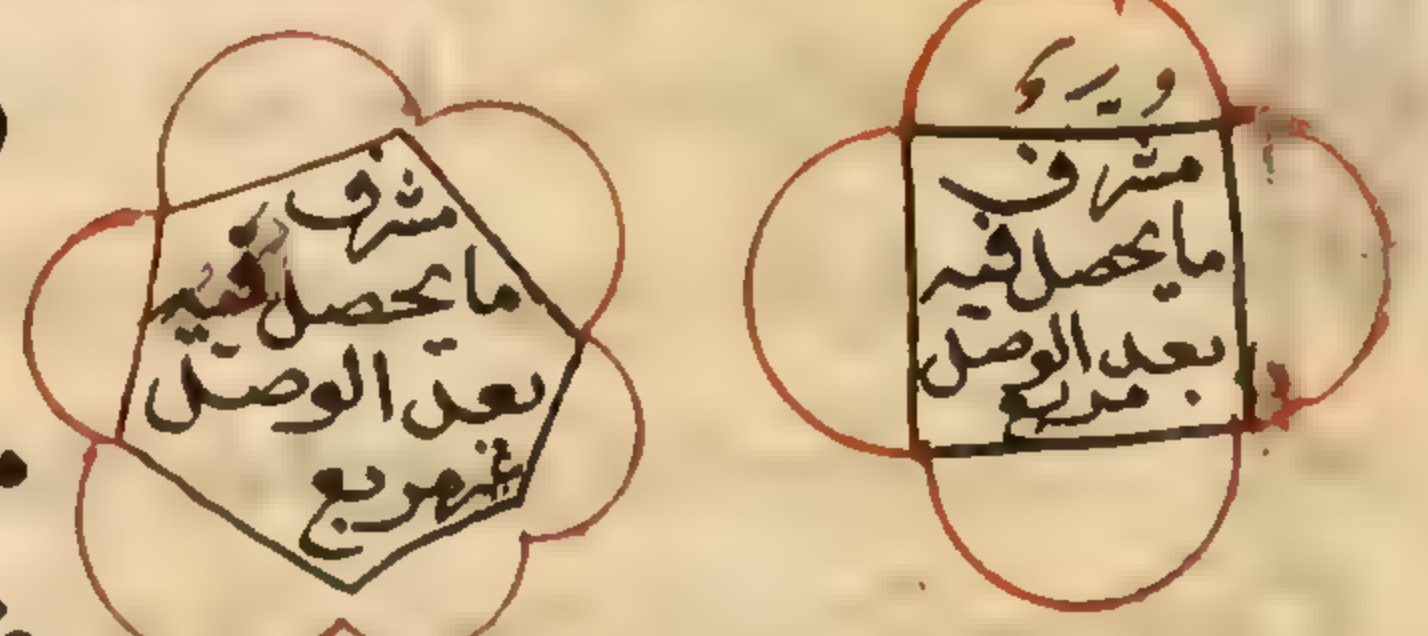 مشرف
ما يحصل فيه
بعد الوصل
مربع
مشرف
ما يحصل فيه
بعد الوصل
مربع